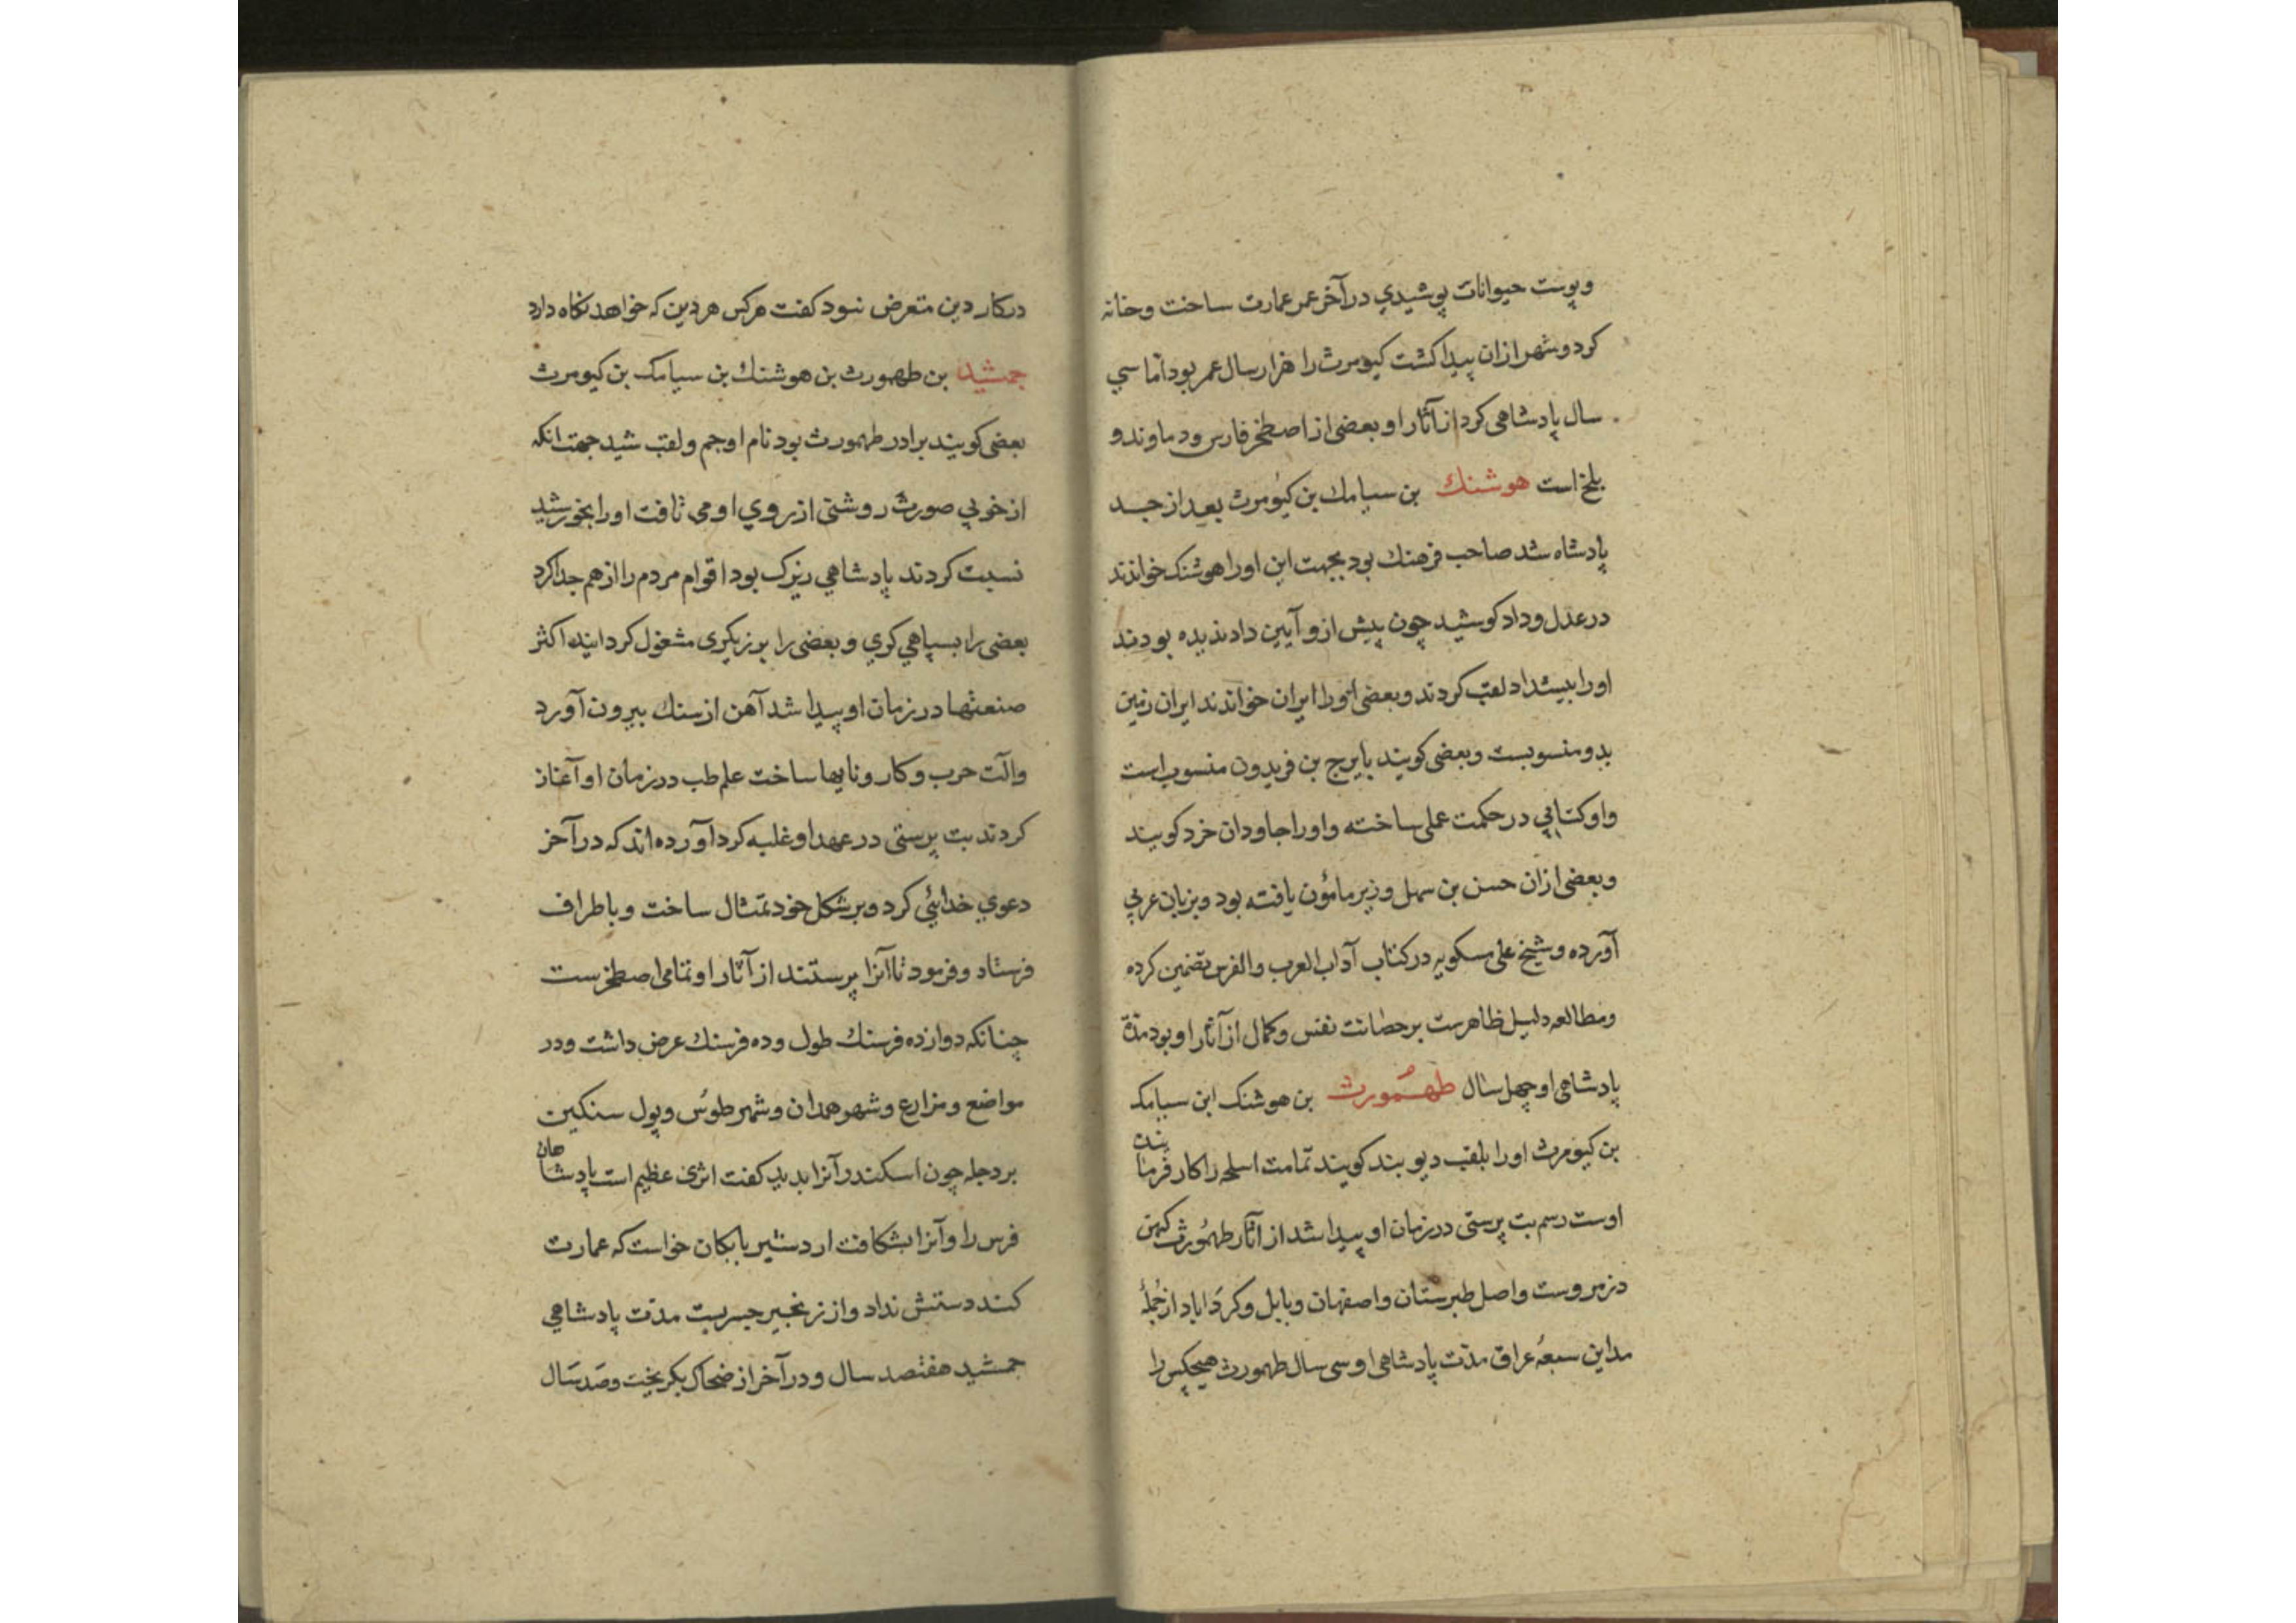 وپوست حیوانات پوشیدي درآخر عمر عمارت ساخت وخانه
کرد وشهر ازان پیدا کشت کیومرث را هزار سال عمر بود اما سي
سال پادشاهی کرد از آثار او بعضی از اصطخر فارس ودماوند و
بلخ است هوشنك بن سیامك بن کیومرث بعد از جد
پادشاه شد صاحب فرهنك بود بجهت این اورا هوشنك خواندند
در عدل وداد کوشید چون پیش ازو آیین داد ندیده بودند
اورا بیشداد لقب کردند وبعضی اورا ایران خواندند ایران زمین
بدو منسوبست وبعضی کویند بایرج بن فریدون منسوب است
واو کتابي در حکمت عملی ساخته واورا جاودان خرد کویند
وبعضی ازان حسن بن سهل وزیر مامؤن یافته بود وبزبان عربي
آورده وشیخ علی مسکویه در کتاب آداب العرب والفرس تضمین کرده
ومطالعه دلیل ظاهرست بر حصانت نفس وکمال از آثار او بود مدة
پادشاهی او چهل سال طهمورث بن هوشنك ابن سیامك
بن کیومرث اورا بلقب دیو بند کویند تمامت اسلحه را کار فرمابنده
اوست رسم بت پرستی در زمان او پیدا شد از آثار طهمورث کهن
دز مروست واصل طبرستان واصفهان وبابل وکرداباد از جمله
مداین سبعه عراق مدت پادشاهی او سی سال طهمورث هیچکس را
در کار دین متعرض نبود کفت هر کس هر دین که خواهد نکاه دارد
جمشید بن طهمورث بن هوشنك بن سیامك بن کیومرث
بعضی کویند برادر طهمورث بود نام او جم ولقب شید جهت انکه
از خوبي صورت روشنی از روي او می تافت اورا بخورشید
نسبت کردند پادشاهي زیرك بود اقوام مردم را از هم جدا کرد
بعضی را بسپاهي کري وبعضی را برزیکری مشغول کردانید اکثر
صنعتها در زمان او پیدا شد آهن از سنك بیرون آورد
وآلت حرب وکار ونابها ساخت علم طب در زمان او آغاز
کردند بت پرستی در عهد او غلبه کرد آورده اند که در آخر
دعوي خدائي کرد وبر شکل خود تمثال ساخت وباطراف
فرستاد وفرمود تا آنرا پرستند از آثار او تمامی اصطخرست
چنانکه دوازده فرسنك طول وده فرسنك عرض داشت ودر
مواضع ومزارع وشهر همدان وشهر طوس وپول سنکین
بر دجله چون اسکندر آنرا بدید کفت اثری عظیم است پادشاهان
فرس را وآنرا بشکافت اردشیر بابکان خواست که عمارت
کند دستش نداد واز زنجیر جسر بست مدت پادشاهي
جمشید هفتصد سال ودر آخر از ضحاك بکریخت وصد سال